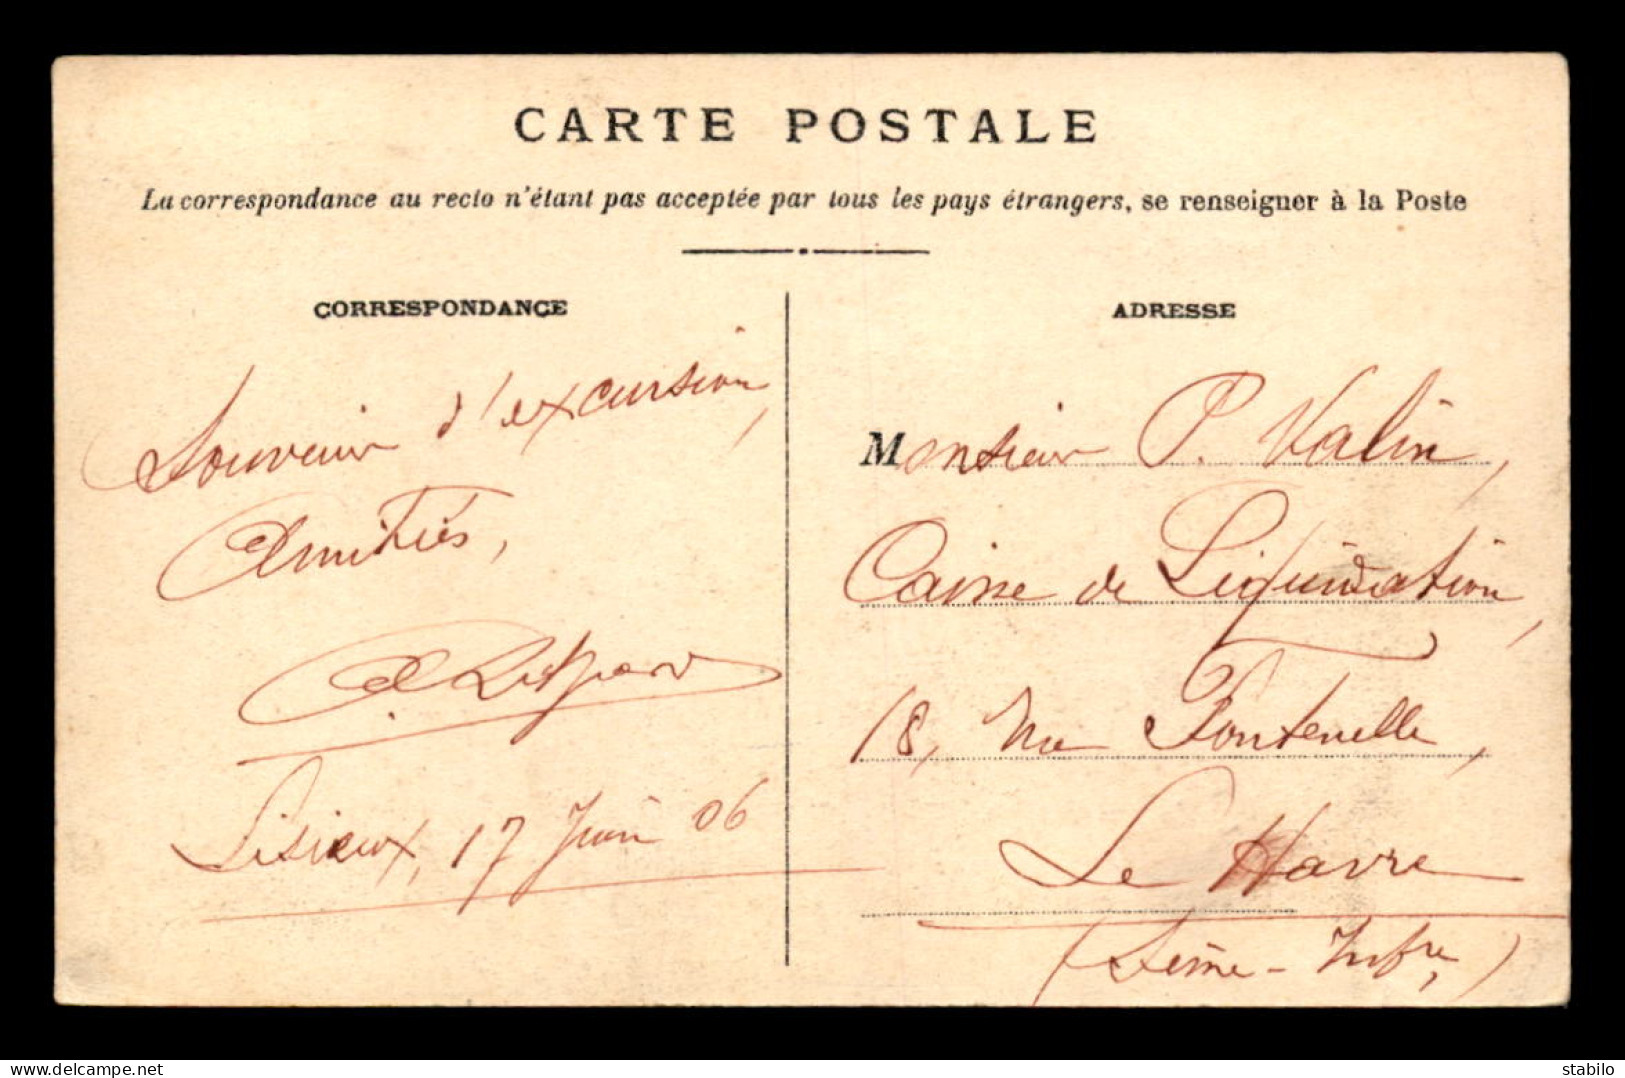 CARTE POSTALE
La correspondance au recto n'étant pas acceptée par tous les pays étrangers, se renseigner à la Poste
CORRESPONDANCE
Souvenir d'excursion,
Amitiés,
Lisieux, 17 Juin 06
ADRESSE
Monsieur P. Valin,
Caisse de Liquidation,
18, rue Fontenelle,
Le Havre
(Seine-Infre)
stabilo